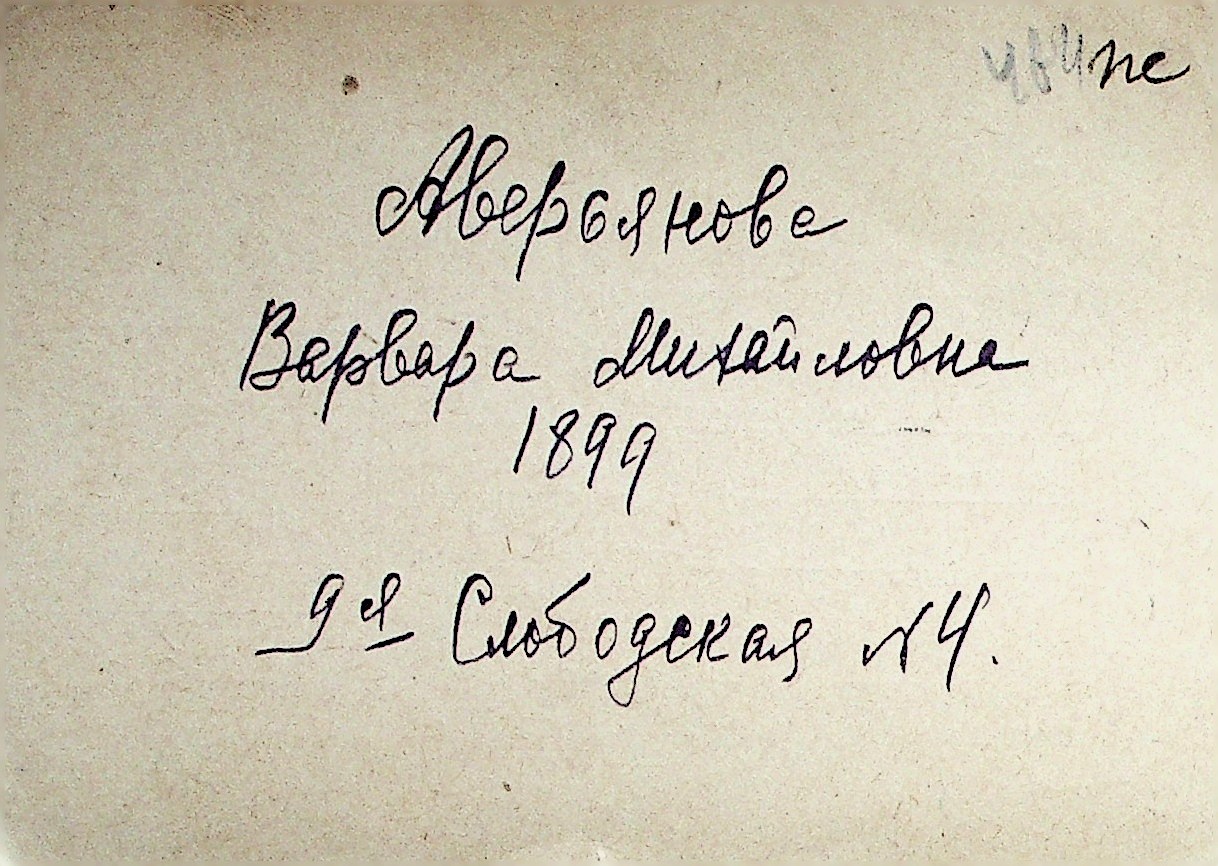 пе
Аверьянова
Варвара Михайловна
1899
9я Слободская N4.